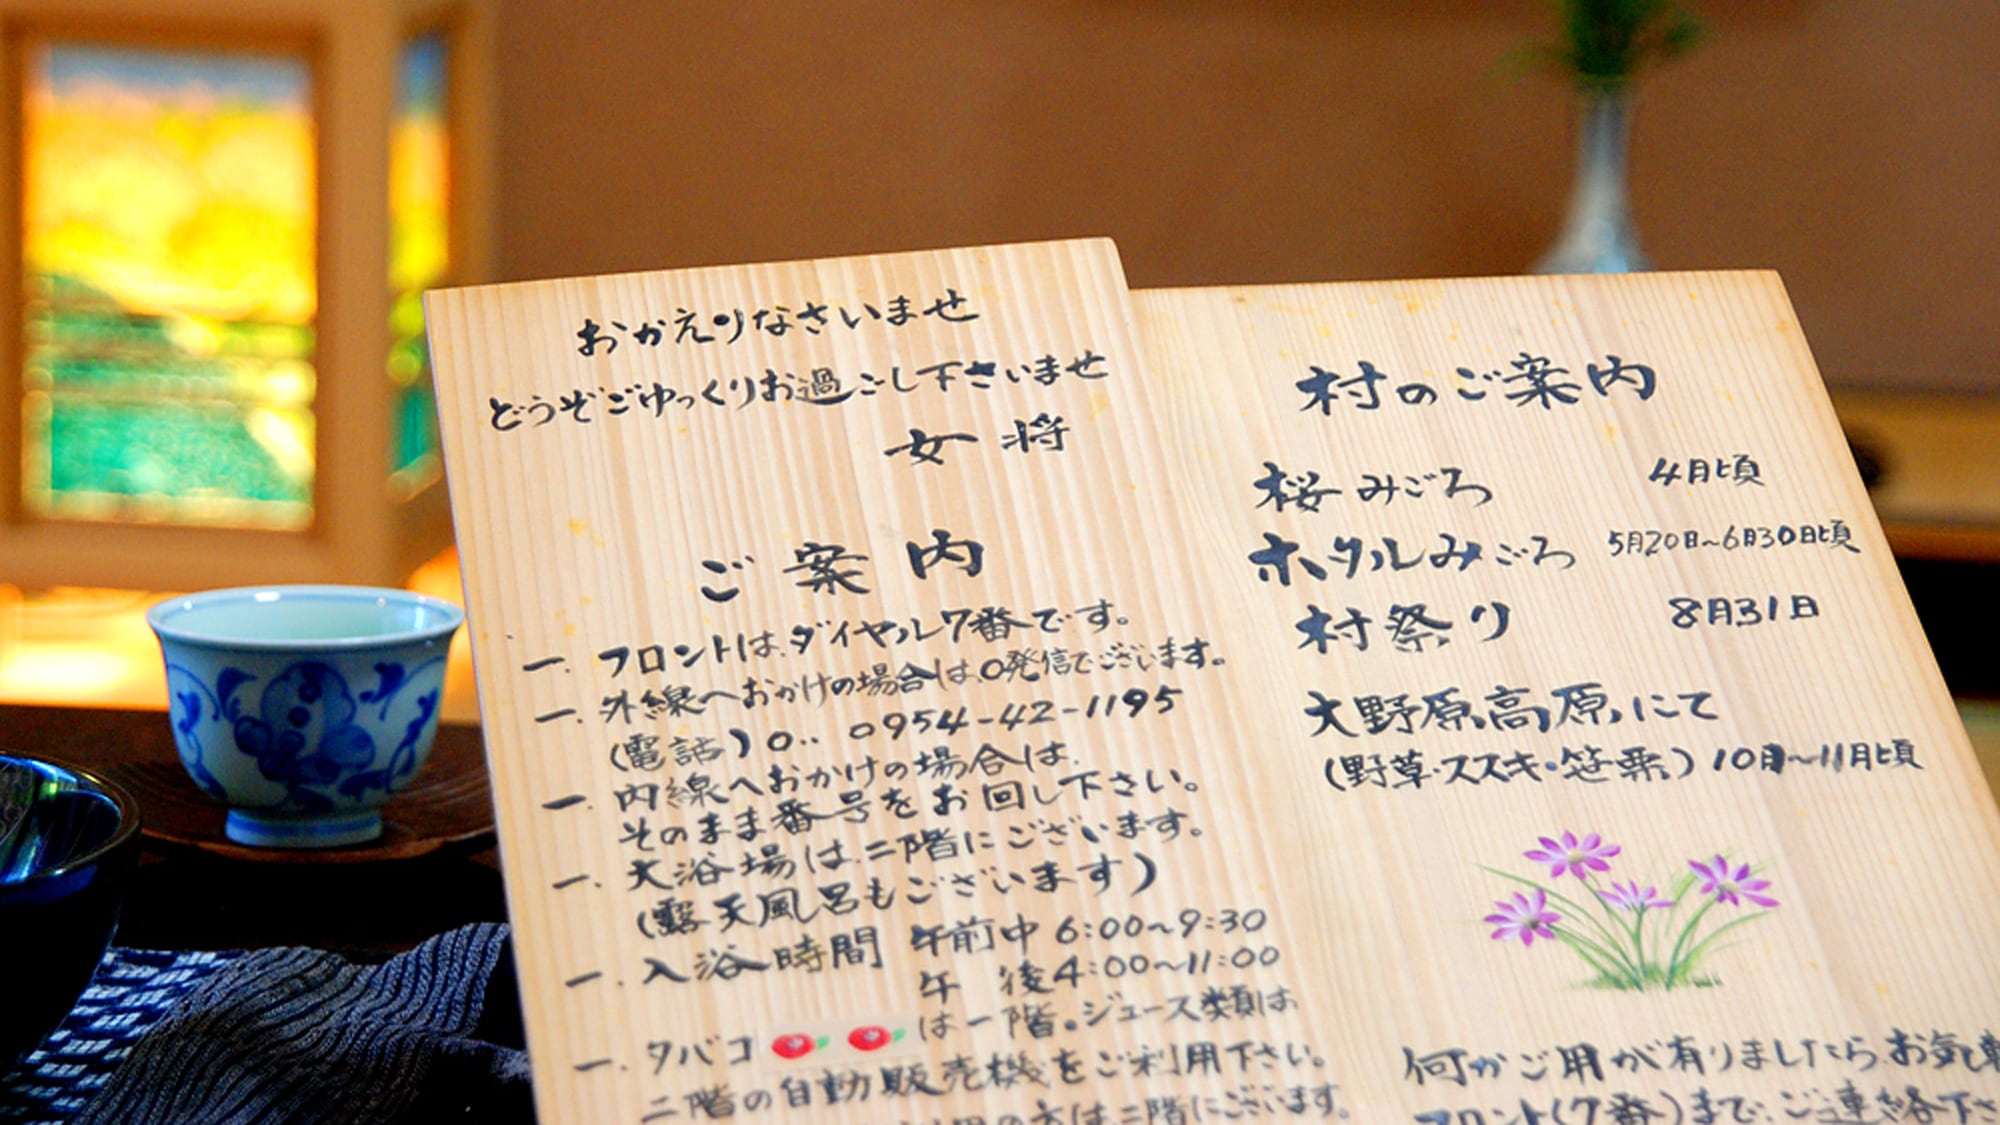 おかえりなさいませ
どうぞごゆっくりお過ごし下さいませ
女将
ご案内
一. フロントは、ダイヤル7番です。
一. 外線へおかけの場合は、0発信でございます。
(電話)0.. 0954-42-1195
一. 内線へおかけの場合は、
そのまま番号をお回し下さい。
一. 大浴場は、二階にございます。
(露天風呂もございます)
一. 入浴時間 午前中 6:00~9:30
午 後 4:00~11:00
一. タバコ は一階。ジュース類は
二階の自動販売機をご利用下さい。
の方は二階にございます。
村のご案内
桜みごろ 4月頃
ホタルみごろ 5月20日~6月30日頃
村祭り 8月31日
大野原高原にて
(野草・ススキ・笹栗) 10月~11月頃
何かご用が有りましたら、お気軽
フロント(7番)まで、ご連絡下さ